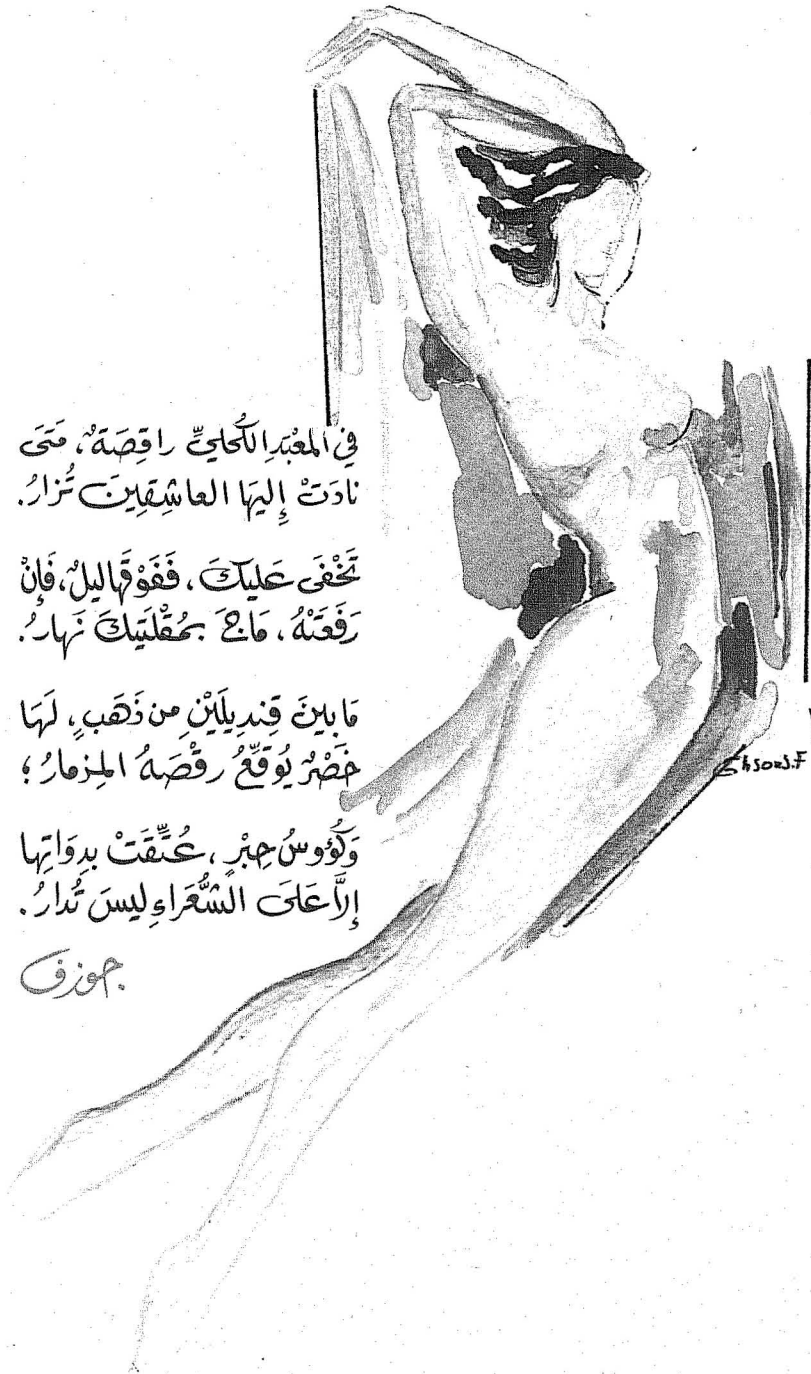 في المَعْبَدِ الكُحليِّ راقِصَةٌ، مَتَى
نادَتْ إِليهَا العاشِقِينَ تُزارُ.
تَخْفَى عَليكَ، فَفَوْقَها ليلٌ، فَإِنْ
رَفَعَتْهُ، مَاجَ بمُقْلَتَيكَ نَهارُ.
مَا بينَ قِنديلَيْنِ من ذَهَبٍ، لَهَا
خَصْرٌ يُوَقِّعُ رقْصَهُ المِزمارُ؛
وَكُؤوسُ حِبْرٍ، عُتِّقَتْ بدِوَاتِها
إلاَّ عَلَى الشُّعَراءِ ليسَ تُدارُ.
جوزف